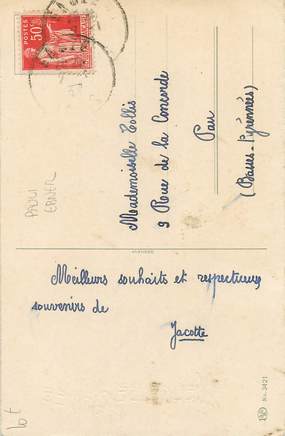 POSTES
50c
Mademoiselle Tollis
9 Rue de la Concorde
Pau
(Basses-Pyrénées)
PAULI
EBNER
Meilleurs souhaits et respectueux
souvenirs de
Jacotte
No. 3421